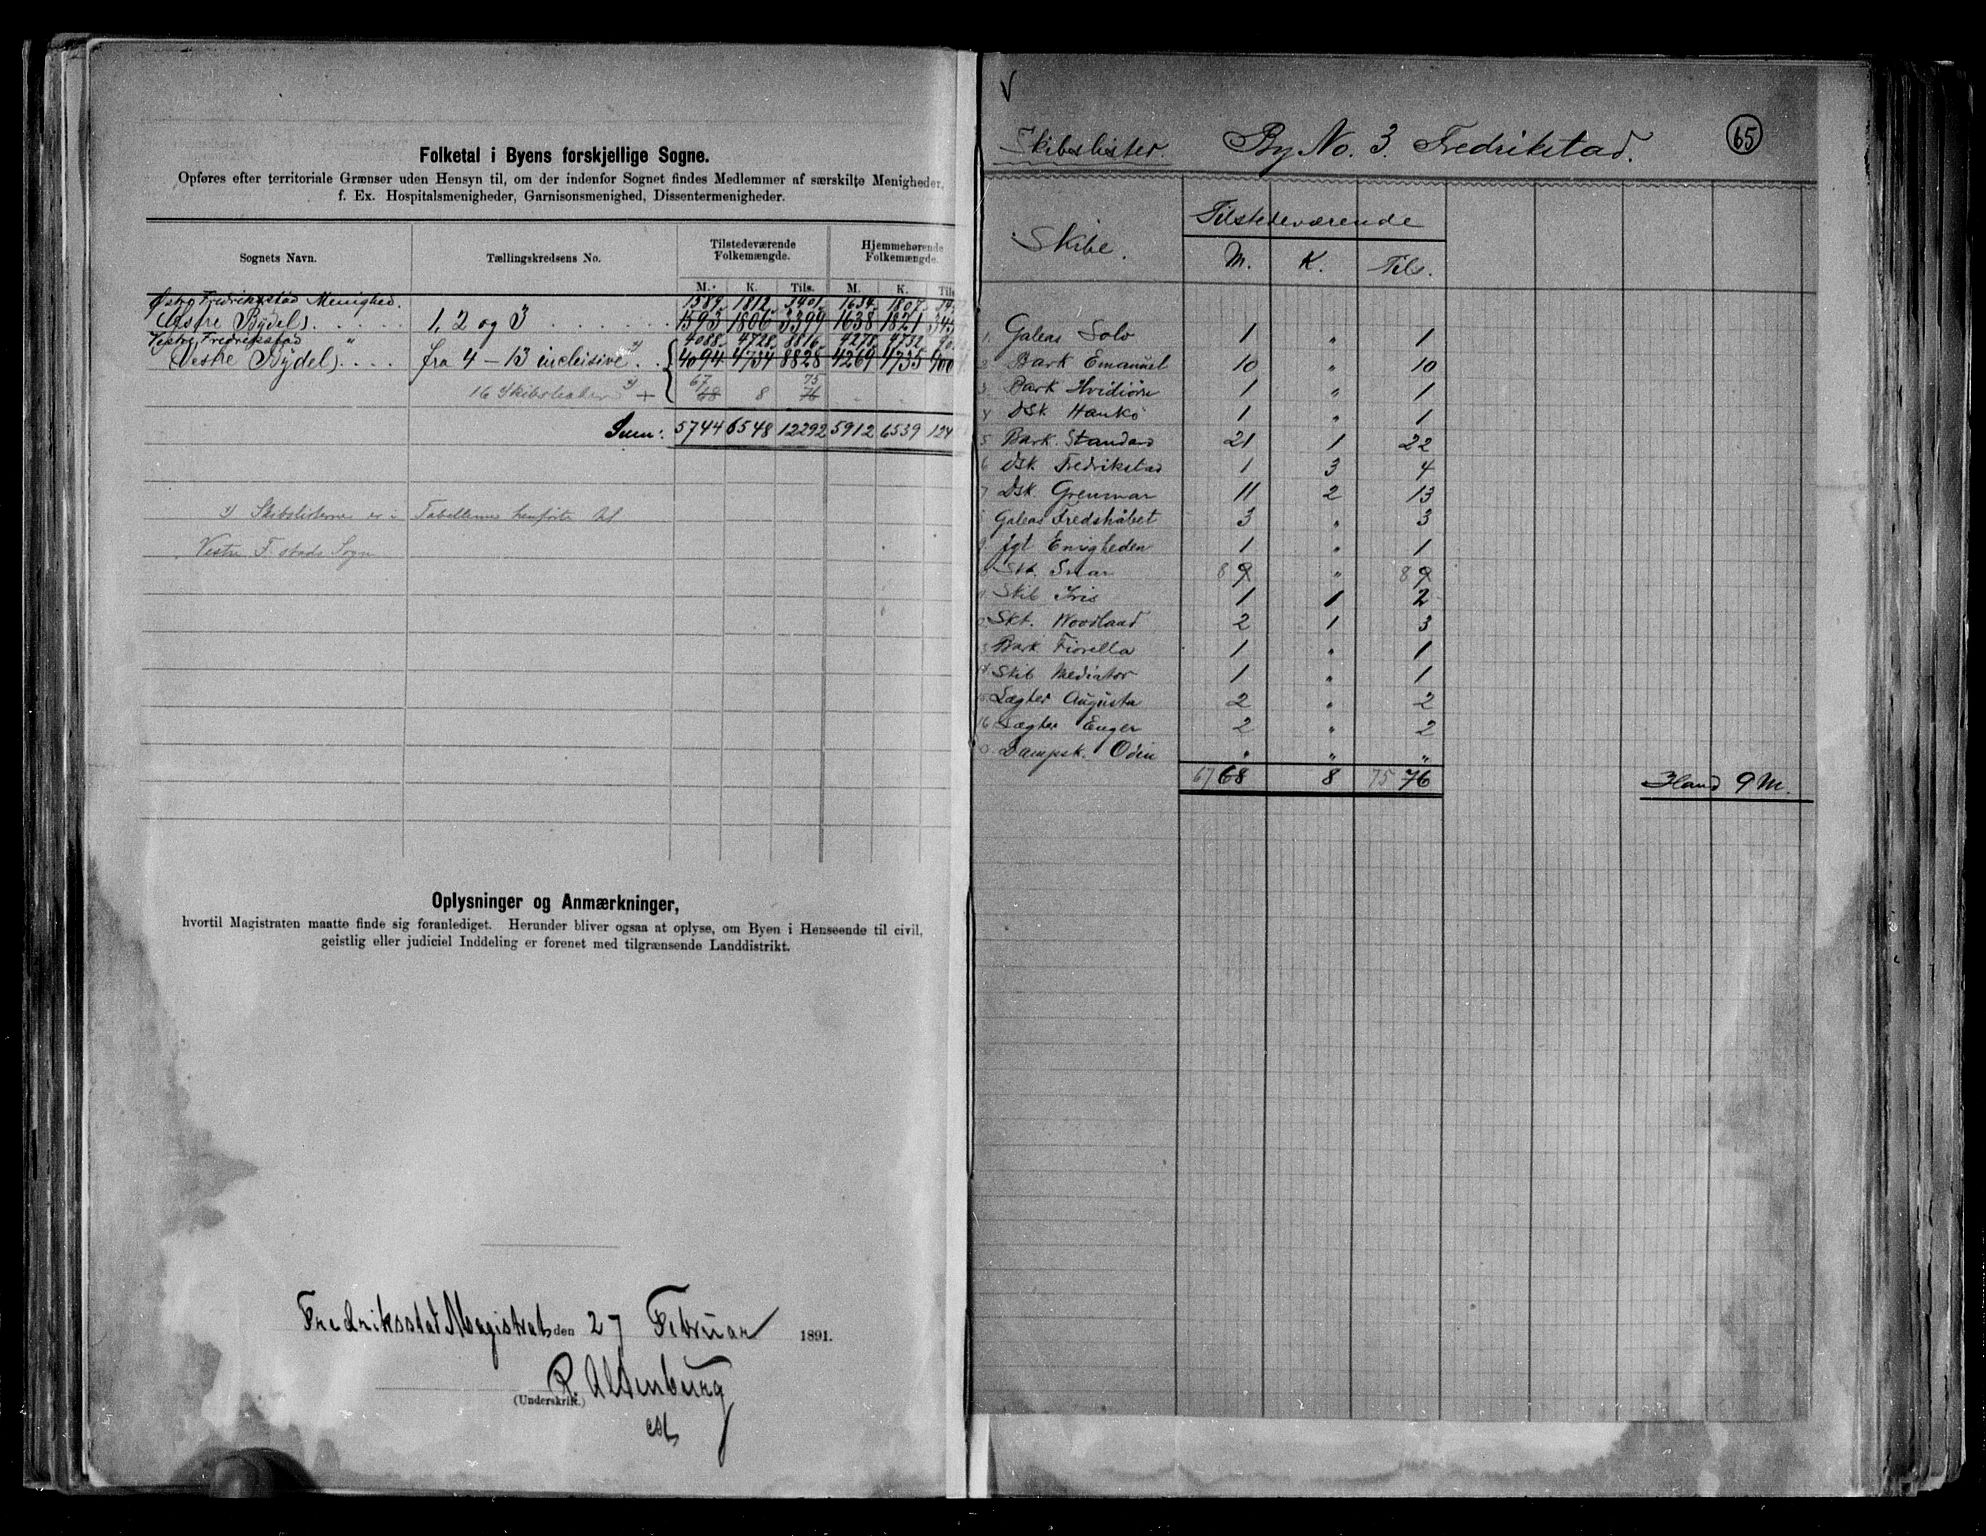 Folketal i Byens forskjellige Sogne.
Opføres efter territoriale Grænser uden Hensyn til, om der indenfor Sognet findes Medlemmer af særskilte Menigheder,
f. Ex. Hospitalsmenigheder, Garnisonsmenighed, Dissentermenigheder.
Sognets Navn. Tællingskredsens No. Tilstedeværende Folkemængde. Hjemmehørende Folkemængde.
M. K. Tils. M. K. Tils
Østre Fredriksstad Menighed. 1589 1812 3401 1634 1807
(Østre Bydel) 1, 2 og 3 1593 1806 3399 1638 1821 345
Vestre Fredriksstad " 4088 4728 8816 4278 4732
(Vestre Bydel) fra 4 - 13 inclusive 4094 4734 8828 4269 4735 900
67 75
16 Skibslister + 68 8 76
Sum: 5744 6548 12292 5912 6539 124
Skibslisterne er i Tabellerne henførte til
Vestre F.stads Sogn
Oplysninger og Anmærkninger,
hvortil Magistraten maatte finde sig foranlediget. Herunder bliver ogsaa at oplyse, om Byen i Henseende til civil,
geistlig eller judiciel Inddeling er forenet med tilgrænsende Landdistrikt.
Fredriksstad Magistrat den 27 Februar 1891.
R. Altenburg
(Underskrift.)
cst
V
Skibslister. By No. 3. Fredrikstad. 65
Skibe. Tilstedeværende
M. K. Tils.
1 Galeas Solo 1 " 1
2 Bark Emanuel 10 " 10
3 Bark Hvidiørn 1 " 1
4 Dsk Hankø 1 " 1
5 Bark. Standard 21 1 22
6 Dsk Fredrikstad 1 3 4
7 Dsk. Grenmar 11 2 13
8 Galeas Fredshåbet 3 " 3
9 Jgt Enigheden 1 " 1
Skt. Snar 8 9 " 8 9
Skib Iris 1 1 2
Skt. Woodland 2 1 3
Bark Fiorella 1 " 1
14 Skib Mediator 1 " 1
15 Lægter Augusta 2 " 2
16 Lægter Enger 2 " 2
0 Dampsk. Odin " " "
67 68 8 75 76 Iland 9 M.